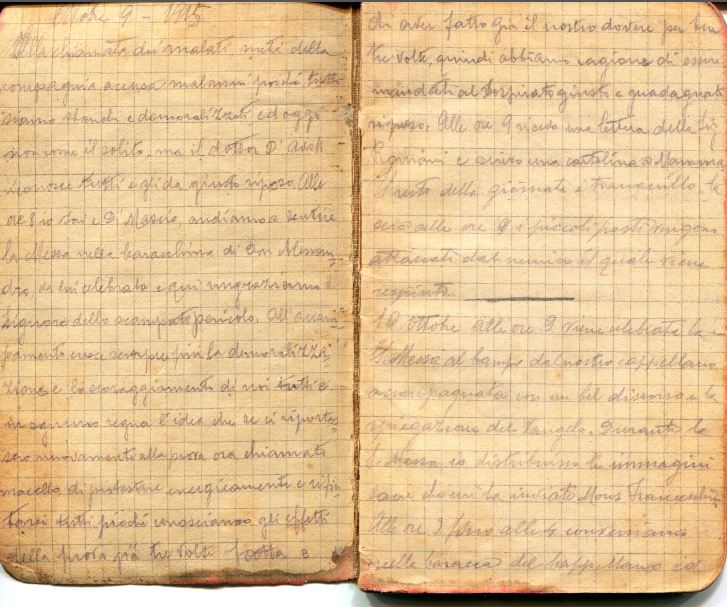 Ottobre 9 - 1915
Alla chiamata dei malati metà della
compagnia accusa malanni poiché tutti
siamo stanchi e demoralizzati ed oggi
non come il solito, ma il dottor D'
riconosce tutti e gli da giusto riposo. Alle
ore 8 io e Di Mascio, andiamo a sentire
la Messa nella baracchina di Don
dro, da lui celebrata e qui ringraziamo il
Signore dello scampato pericolo. All'accam=
pamento cresce sempre più la demoralizza=
zione e lo scoraggiamento di noi tutti e
in ognuno regna l'idea che se ci riportas=
sero nuovamente alla prova ora chiamata
macello, di protestare energicamente e rifiu=
tarci tutti poichè conosciamo gli effetti
della prova già tre volte fatta e
di aver fatto già il nostro dovere per ben
tre volte, quindi abbiamo ragione di essere
mandati al sospirato giusto e guadagnato
riposo. Alle ore 9 ricevo una lettera della Sig
e scrivo una cartolina a Mamma.
Il resto della giornata è tranquillo, la
sera alle ore 9 i piccoli posti vengono
attaccati dal nemico il quale viene
respinto.
10 ottobre alle ore 9 viene celebrata la
S. Messa al campo dal nostro cappellano
accompagnata con un bel discorso e la
spiegazione del Vangelo. Durante la
S. Messa io distribuisco le immagini
sacre che mi ha inviato Mons.
Alle ore 3 fino alle 4 conversiamo
nella baracca del Cappellano col